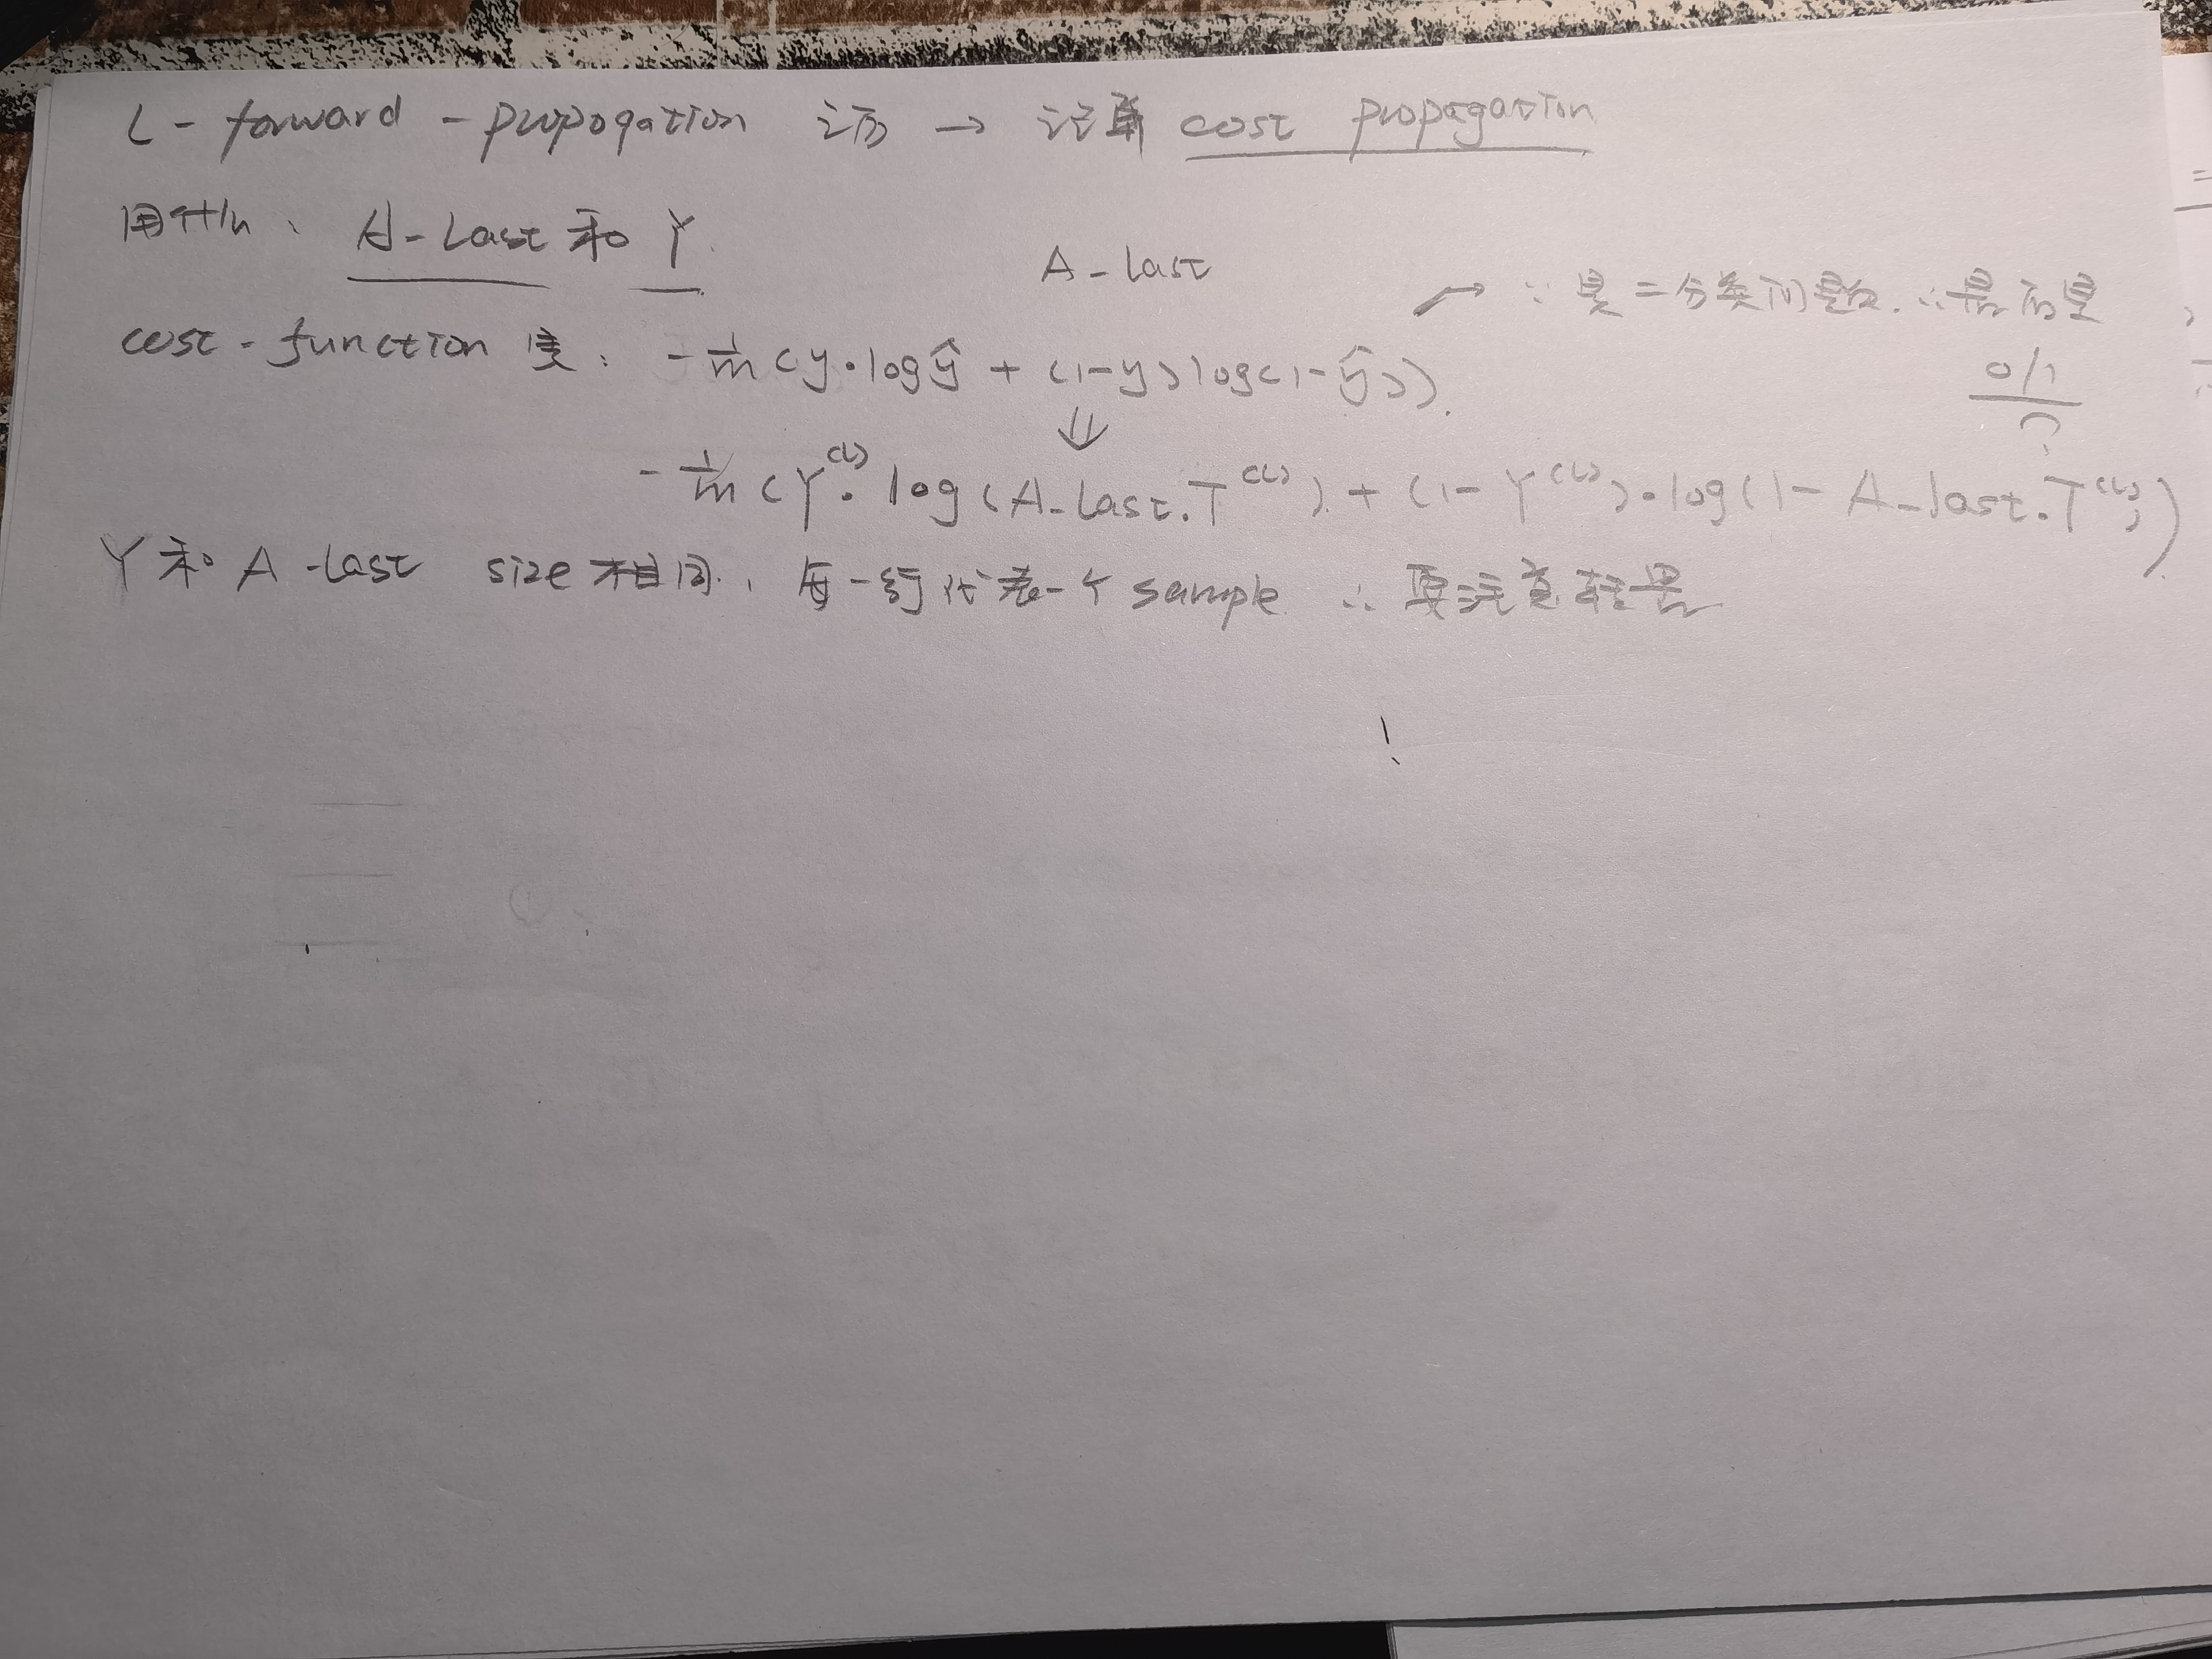 L-forward-propogation 之后 → 计算 cost propagation
用什么、A-Last 和 Y.
A-last
↗ ∵ 是二分类问题. ∴ 最后是
0/1
?
cost-function 是: -1/m (y·logŷ + (1-y)log(1-ŷ)).
⇓
-1/m (Y^(L)· log(A-Last.T^(L)) + (1-Y^(L))·log(1-A-last.T^(L)))
Y 和 A-last size 相同、每一行代表一个 sample. ∴ 要注意转置